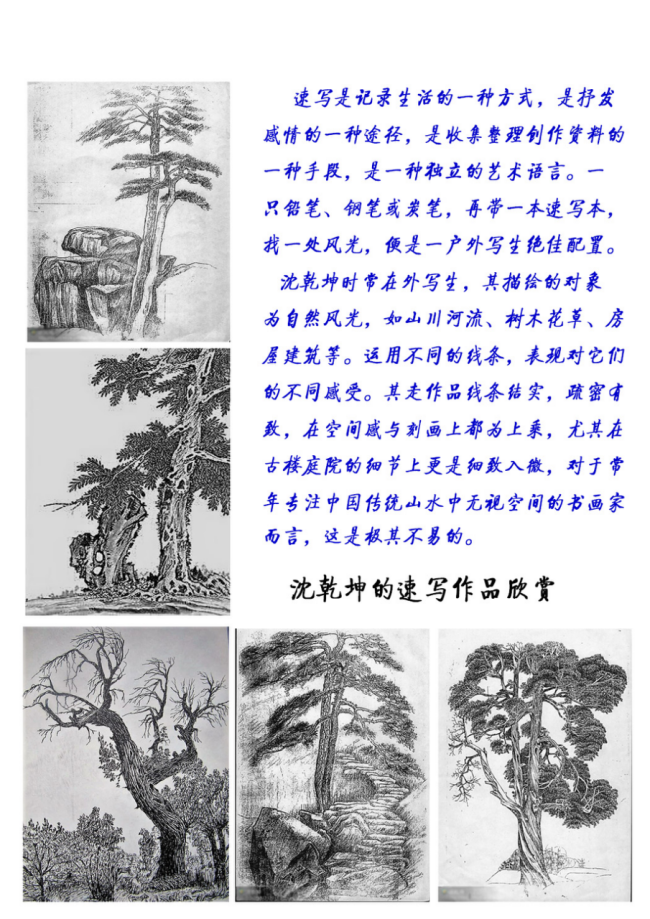 速写是记录生活的一种方式，是抒发
感情的一种途径，是收集整理创作资料的
一种手段，是一种独立的艺术语言。一
只铅笔、钢笔或炭笔，再带一本速写本，
找一处风光，便是一户外写生绝佳配置。
沈乾坤时常在外写生，其描绘的对象
为自然风光，如山川河流、树木花草、房
屋建筑等。运用不同的线条，表现对它们
的不同感受。其走作品线条结实，疏密有
致，在空间感与刻画上都为上乘，尤其在
古楼庭院的细节上更是细致入微，对于常
年专注中国传统山水中无视空间的书画家
而言，这是极其不易的。
沈乾坤的速写作品欣赏